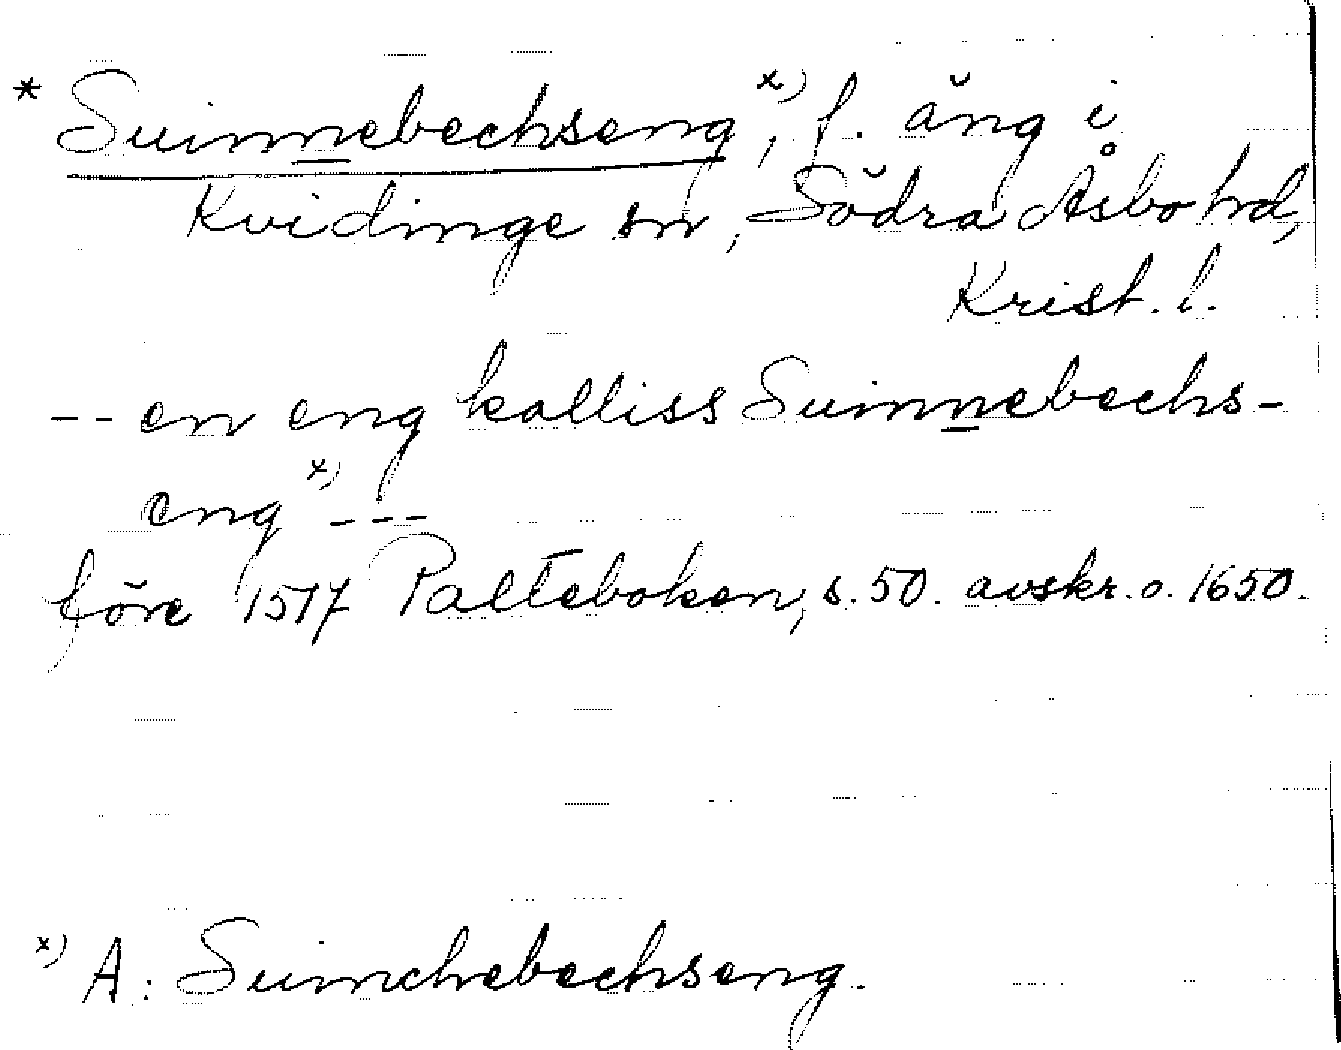 * Suinnebechseng x), f. äng i
Kvidinge sn, Södra Åsbo hd,
Krist. l.
-- en eng kalliss Suinnebechs-
eng x) ---
före 1517 Palteboken, s. 50. avskr. o. 1650.
x) A: Suinchebechseng.